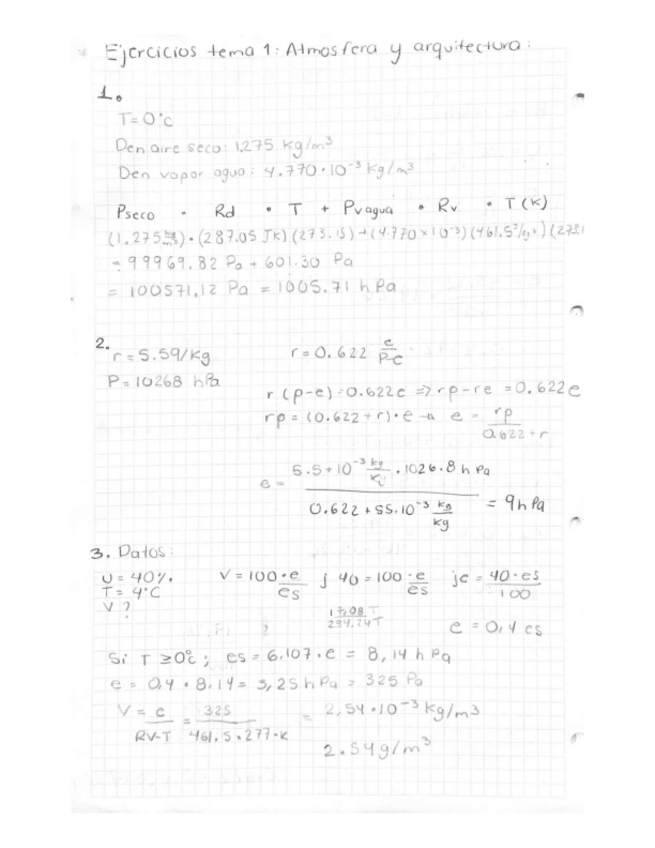 Ejercicios tema 1: Atmosfera y arquitectura:
1.
T=0°c
Den aire seco: 1,275 kg/m³
Den vapor agua: 4.770·10⁻³ kg/m³
Pseco · Rd · T + Pvagua · Rv · T(K)
(1.275 kg/m³)·(287.05 JK)(273.15)+(4.770×10⁻³)(461.5
= 99969.82 Pa + 601.30 Pa
= 100571,12 Pa = 1005.71 hPa
2.
r = 5.59/kg r = 0.622 e/P-e
P = 10268 hPa
r (p-e) = 0.622e => rp-re = 0.622e
rp = (0.622+r)·e → e = rp/0.622+r
e = 5.5+10⁻³ kg/ · 1026.8 h Pa / 0.622 + 55.10⁻³ kg/kg = 9hPa
3. Datos:
U = 40%. V = 100·e/es j 40 = 100·e/es je = 40·es/100
T = 4°C
V ?
17,08T/234,24T
e = 0,4 es
Si T ≥0°c; es = 6.107·e = 8,14 h Pa
e = 0,4 · 8.14 = 3,25 h Pa = 325 Pa
V = e/RV·T = 325/461.5·277·K = 2,54·10⁻³ kg/m3
2.54g/m³